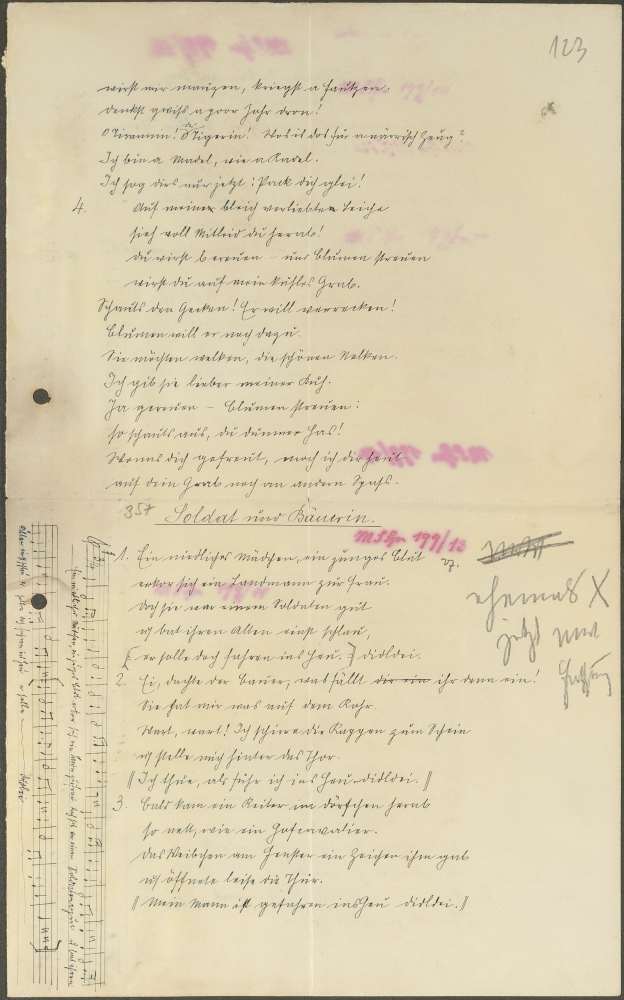 123
wirst nur maunzen, kriegst a Fauntzen.
denkst gwiss a poor Johr dron!
O Tirannin! O Tigerin! Wos is das für a närrisch Zeug?
Ich bin a Madel, wie a Radel.
Ich sog dirs nur jetzt: Pack dich glei!
4. Auf meine bleich verliebte Leiche
sieh voll Mitleid du herab!
du wirst bereuen – und Blumen streuen
wirst du auf mein kühles Grab.
Schauts den Gecken! Er will verrecken!
Blumen will er noch dazu.
Sie möchten welken, die schönen Nelken.
Ich gib sie lieber meiner Kuh.
Ja gereuen – Blumen streuen:
so schauts aus, du dummer Has!
Wenns dich gefreut, mach ich dir heut
auf dein Grab noch an andern Spass.
357 Soldat und Bäuerin.
M.S. 199/13
1. Ein niedliches Mädchen, ein junges Blut
erkor sich ein Landmann zur Frau.
Doch sie war einem Soldaten gut
und bat ihren Alten einst schlau,
[er solle doch fahren ins Heu.] didldei.
ehemals X
jetzt nur
2. Ei, dachte der Bauer, was fällt die ein ihr denn ein!
Sie hat mir was auf dem Rohr.
Wart, wart! Ich schirre die Rappen zum Schein
und stelle mich hinter das Thor.
|| Ich thue, als führ ich ins Heu. didldei. ||
3. Bald kam ein Reiter im Dörfchen herab
so nett, wie ein Hofcavalier.
Das Weibchen am Fenster ein Zeichen ihm gab
und öffnete leise die Thür.
|| Mein Mann ist gefahren ins Heu didldei. ||